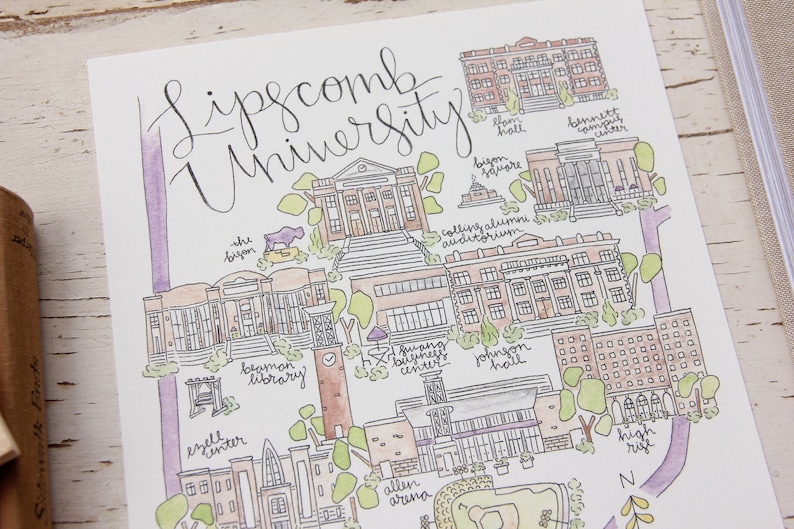 Lipscomb
University
elam
hall
bennett
campus
center
bison
square
collins alumni
auditorium
the
bison
beaman
library
swang
business
center
johnson
hall
high
rise
ezell
center
allen
arena
N